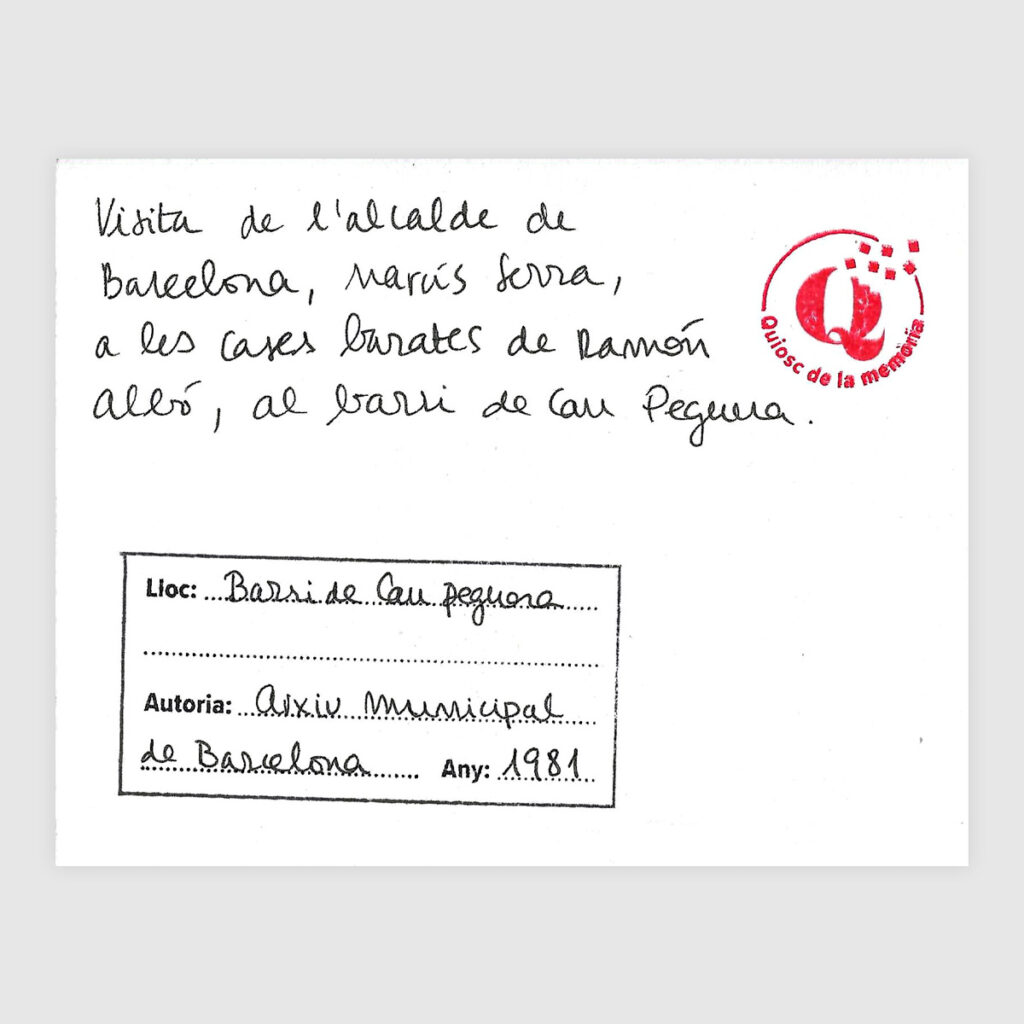 Visita de l'alcalde de
Barcelona, Narcís Serra,
a les cases barates de Ramón
Albó, al barri de Can Peguera.
Quiosc de la memòria
Lloc: Barri de Can peguera
Autoria: Arxiu Municipal
de Barcelona Any: 1981